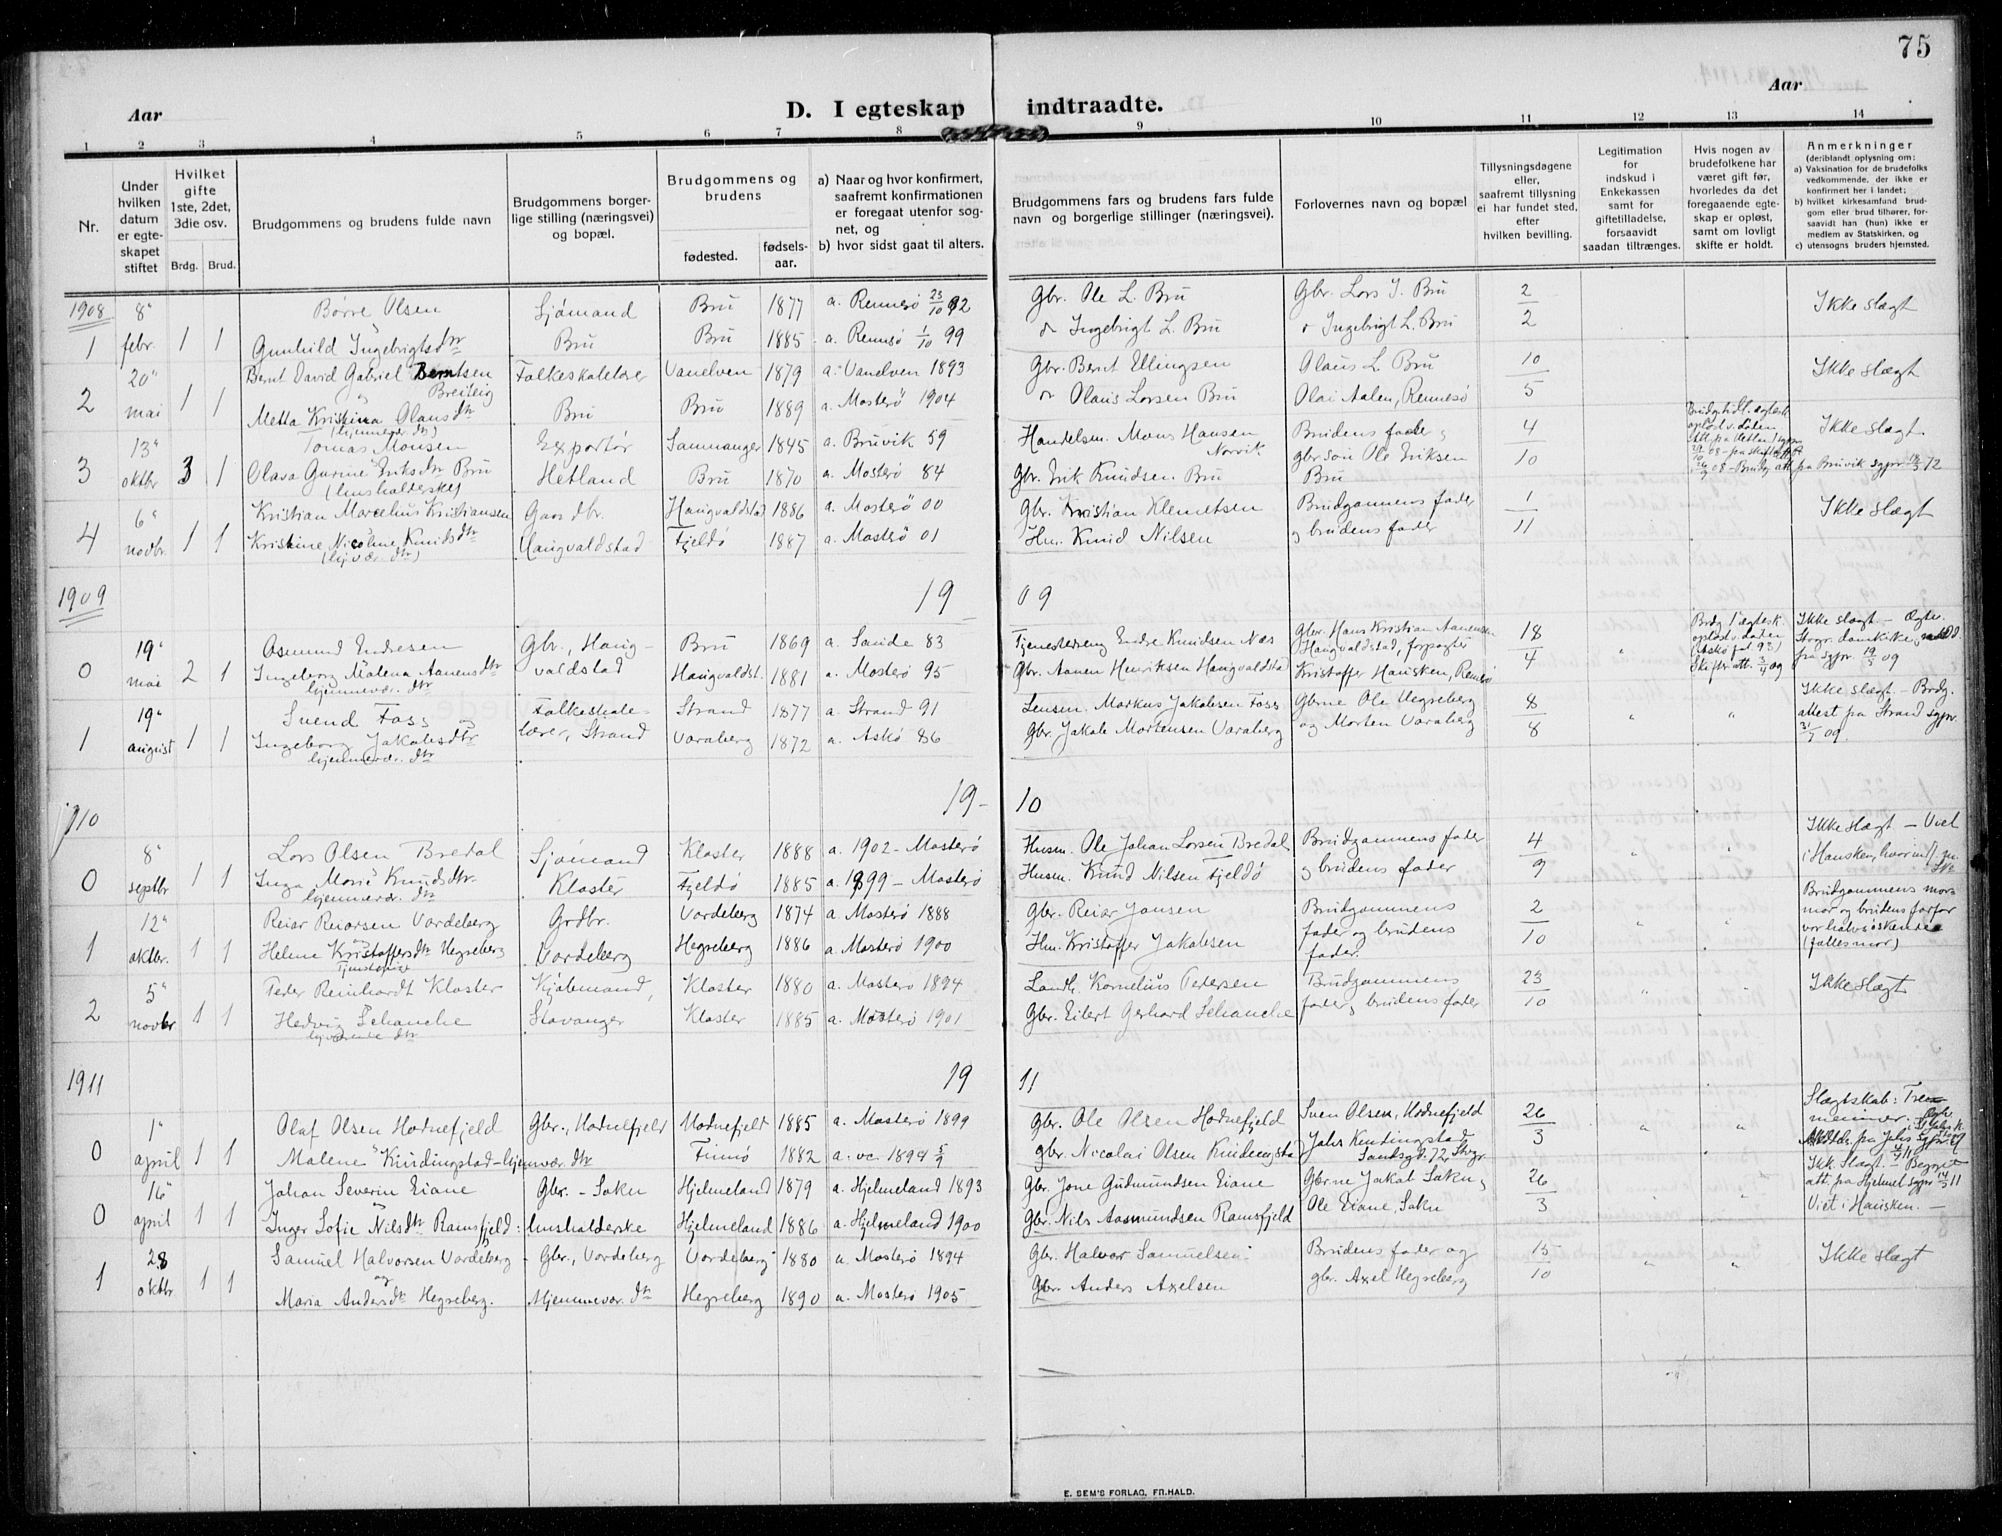 75
Aar
D. I egteskap indtraadte.
Aar
1 2 3 4 5 6 7 8 9 10 11 12 13 14
Nr.
Under hvilken datum er egteskapet stiftet
Hvilket gifte 1ste, 2det, 3die osv.
Brdg. Brud.
Brudgommens og brudens fulde navn
Brudgommens borgerlige stilling (næringsvei) og bopæl.
Brudgommens og brudens
fødested.
fødselsaar.
a) Naar og hvor konfirmert, saafremt konfirmationen er foregaat utenfor sognet, og
b) hvor sidst gaat til alters.
Brudgommens fars og brudens fars fulde navn og borgerlige stillinger (næringsvei).
Forlovernes navn og bopæl
Tillysningsdagene eller, saafremt tillysning ei har fundet sted, efter hvilken bevilling.
Legitimation for indskud i Enkekassen samt for giftetilladelse, forsaavidt saadan tiltrænges.
Hvis nogen av brudefolkene har været gift før, hvorledes da det foregaaende egteskap er opløst, samt om lovligt skifte er holdt.
Anmerkninger
(deriblandt oplysning om:
a) Vaksination for de brudefolks vedkommende, der ikke er konfirmert her i landet;
b) hvilket kirkesamfund brudgom eller brud tilhører, forsaavidt han (hun) ikke er medlem av Statskirken, og
c) utensogns bruders hjemsted.
1908 8" Børre Olsen Sjømand Bru 1877 a. Rennesø 23/10 92 Gbr. Ole L. Bru Gbr. Lars I. Bru 2/2 Ikke slegt
1 febr. 1 1 Gunhild Ingebrigtsdtr Bru Bru 1885 a. Rennsø 1/10 99 Ingebrigt L. Bru Ingebrigt L. Bru
20" Bernt David Gabriel Berntsen Breileig Folkeskolelærer Vanelven 1879 a. Vanelven 1893 Gbr. Bernt Ellingsen Olaus L. Bru 10/5 Ikke slægt
2 mai 1 1 Metta Kristina Olausdtr (hjemmevær. dtr) Bru Bru 1889 a. Mosterö 1904 Olaus Larsen Bru Olai Aalen, Rennesø
13" Tomas Monsen Exportør Samnanger 1845 a. Bruvik 59 Handelsm. Mons Hansen Norvik Brudens fader, 4/10 Ikke slægt
3 oktbr 3 1 Olava Gurine Eriksdtr Bru (husholderske) Hetland Bru 1870 a. Mosterö 84 Gbr. Erik Knudsen Bru gbrsøn Ole Eriksen Bru
6" Kristian Marcelius Kristiansen Gaardbr. Haugvaldstad 1886 a. Mosterö 00 Gbr. Kristian Klemetsen Brudgommens fader 1/11 Ikke slægt
4 novbr. 1 1 Kristine Nicoline Knudsdtr (hjvær. dtr) Haugvaldstad Fjeldö 1887 a. Mosterö 01 Hm. Knud Nilsen og brudens fader
1909 19 09
19" Asmund Endresen Gbr., Haugvaldstad Bru 1869 a. Sande 83 Tjenestedreng Endre Knudsen Næs Gbr. Hans Kristian Aanensen Haugvaldstad, forpagter 18/4
0 mai 2 1 Ingeborg Malena Aanensdtr hjemmevær. dtr Haugvaldst. 1881 a. Mosterø 95 Gbr. Aanen Henriksen Haugvaldstad Kristoffer Hausken, Rennesø
19" Svend Foss Folkeskolelærer, Strand Strand 1877 a. Strand 91 Lensm. Markus Jakobsen Foss Gbrne Ole Hegreberg 8/8 Ikke slegt - Brdg. attest pa Strand sgpr.
1 august 1 1 Ingeborg Jakobsdtr hjemmevær. dtr Varaberg 1872 a. Askø 86 Gbr. Jakob Mortensen Varaberg og Morten Varaberg
1910 19- 10
8" Lars Olsen Bredal Sjømand Kloster 1888 a. 1902 - Mosterö Husm. Ole Johan Larsen Bredal Brudgommens fader 4/9 Ikke slægt - Viet i Hausken,
0 septbr 1 1 Inga Marie Knudsdtr. hjemmevær. dtr Kloster Fjeldø 1885 a. 1899 - Mosterö Husm. Knud Nilsen Fjeldö og brudens fader
12" Reiar Reiarsen Vardeberg Grdbr. Vardeberg 1874 a Mosterö 1888 Gbr. Reiar Jansen Brudgommens fader og brudens fader. 2/10 Brudgommens mormor og brudens farfar var halvsøskende (fælles mor)
1 oktbr. 1 1 Helene Kristoffersdtr Hegreberg Tjenestepige Vardeberg Hegreberg 1886 a. Mosterö 1900 Hm. Kristoffer Jakobsen
5" Peder Reinhardt Kloster Kjøbmand, Kloster 1880 a. Mosterö 1894 Landh. Kornelius Pedersen Brudgommens 23/10 Ikke slægt
2 novbr 1 1 Hedvig Schanche hjværende dtr Stavanger Kloster 1885 a. Mosterö 1901 Gbr. Eilert Gerhard Schanche fader, brudens fader
1911 19 11
1" Olaf Olsen Hodnefjeld Gbr., Hodnefjeld Hodnefjeld 1885 a. Mosterö 1899 Gbr. Ole Olsen Hodnefjeld Sven Olsen, Hodnefjeld 26/3 Slægtskab: Tremenninger.
0 april 1 1 Malene Kindingstad - hjemmevær. dtr Finnø 1882 a. 1894 gbr. Nicolai Olsen Kindingstad Johs Kindingstad
16" Johan Severin Eiane Gbr. - Sokn Hjelmeland 1879 a. Hjelmeland 1893 Gbr. Jone Gudmundsen Eiane Gbrne Jakob Sokn, 26/3 Ikk. Slægt.
0 april 1 1 Inger Sofie Nilsdtr. Ramsfjeld husholderske Hjelmeland 1886 a. Hjelmeland 1900 Gbr. Nils Aasmundsen Ramsfjeld Ole Eiane, Sokn Viet i Hausken. -
28 Samuel Halvorsen Vardeberg Gbr., Vardeberg Vardeberg 1880 a. Mosterö 1894 Gbr. Halvor Samuelsen Brudens fader og 15/10 Ikke slægt
1 oktbr 1 1 og Maria Andersdtr Hegreberg. Hjemmevær. dtr Hegreberg 1890 a. Mosterö 1905 Gbr. Anders Axelsen gbr. Axel Hegreberg
E. SEM'S FORLAG, FR.HALD.